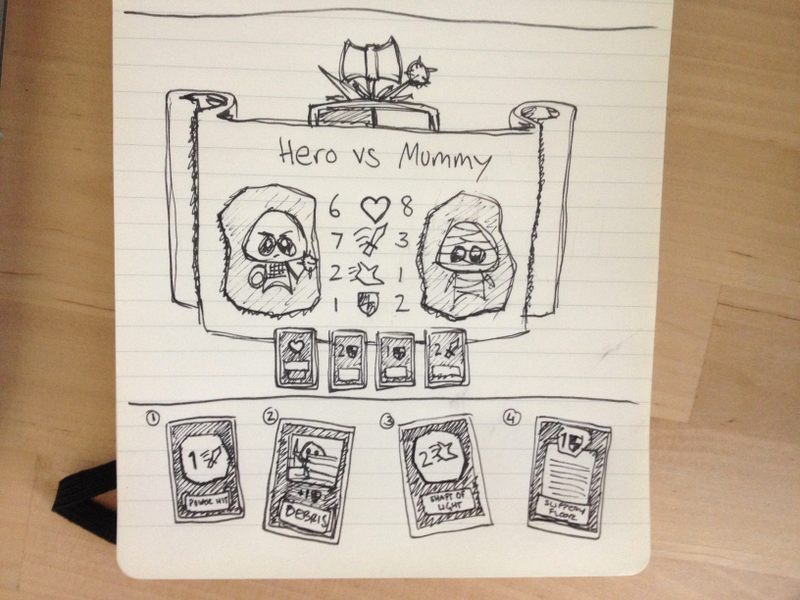 Hero vs Mummy
6 8
7 3
2 1
1 2
2 1 2
① ② ③ ④
1
POWER HIT
+1
DEBRIS
2
SHAFT OF
LIGHT
1
SLIPPERY
FLOOR